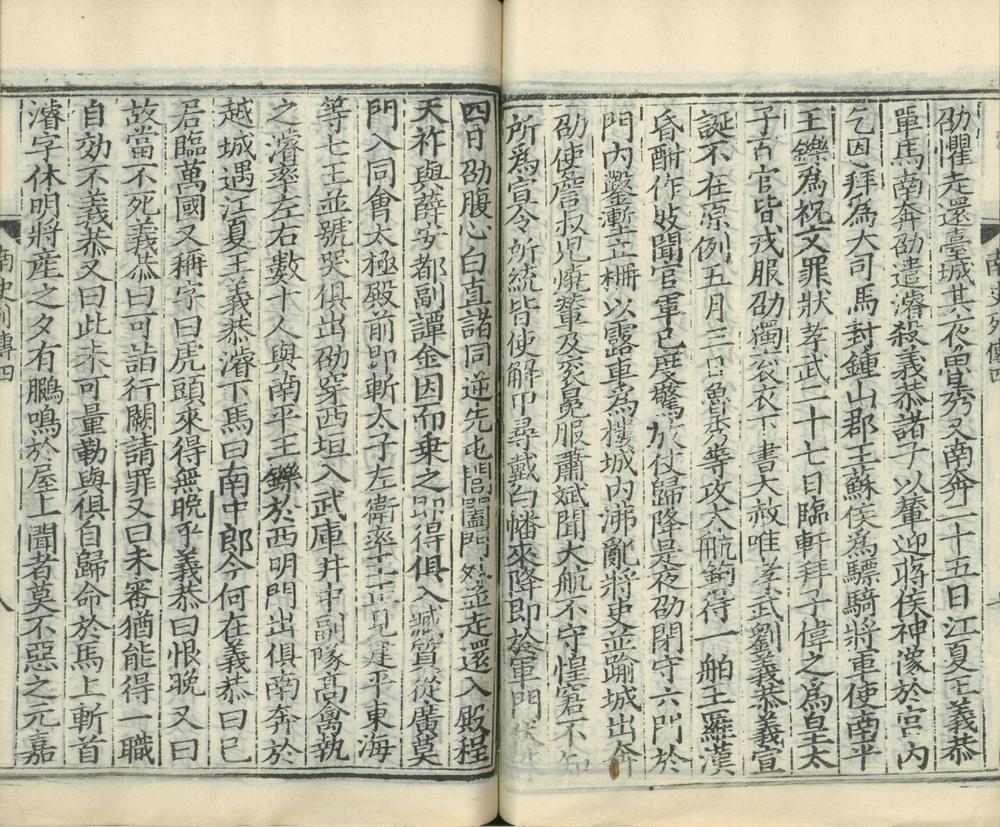 劭懼走還臺城其夜魯秀又南奔二十五日江夏王義恭
單馬南奔劭遣濬殺義恭諸子以輦迎蔣侯神像於宮內
乞因拜為大司馬封鍾山郡王蘇侯為驃騎將軍使南平
王鑠為祝文罪狀孝武二十七日臨軒拜子偉之為皇太
子百官皆戎服劭獨袞衣下書大赦唯孝武劉義恭義宣
誕不在原例五月三日魯秀等攻大航鉤得一舶王羅漢
昏酣作妓聞官軍已度驚放仗歸降是夜劭閉守六門於
門內鑿塹立柵以露車為樓城內沸亂將吏並踰城出奔
劭使詹叔兒燒輦及袞冕服蕭斌聞大航不守惶窘不知
所為宣令所統皆使解甲尋戴白幡來降即於軍門伏
四日劭腹心白直諸同逆先屯閶闔門外並走還入殿程
天祚與薛安都副譚金因而乘之即得俱入臧質從廣莫
門入同會太極殿前即斬太子左衛率王正見建平東海
等七王並號哭俱出劭穿西垣入武庫井中副隊高禽執
之濬率左右數十人與南平王鑠於西明門出俱南奔於
越城遇江夏王義恭濬下馬曰南中郎今何在義恭曰已
君臨萬國又稱字曰虎頭來得無晚乎義恭曰恨晚又曰
故當不死義恭曰可詣行闕請罪又曰未審猶能得一職
自効不義恭又曰此未可量勒與俱自歸命於馬上斬首
濬字休明將產之夕有鵬鳴於屋上聞者莫不惡之元嘉
南史列傳四
八